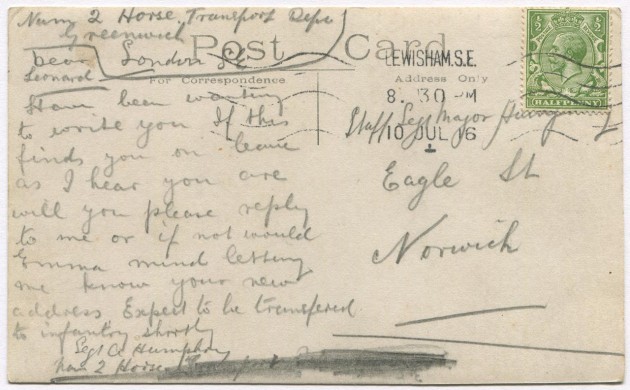 Num 2 Horse, Transport Depo
Greenwich
London S.E.
Post Card
For Correspondence
Address Only
LEWISHAM.S.E.
8. 30 PM
10 JUL 16
1
½ ½
HALFPENNY
Dear
Leonard
Have been wanting
to write you If this
finds you on leave
as I hear you are
will you please reply
to me or if not would
Emma mind letting
me know your new
address Expect to be transfered
to infantry shortly
Sgt C Humphrey
Num 2 Horse Transport
Staff Sgt Major
Eagle St
Norwich